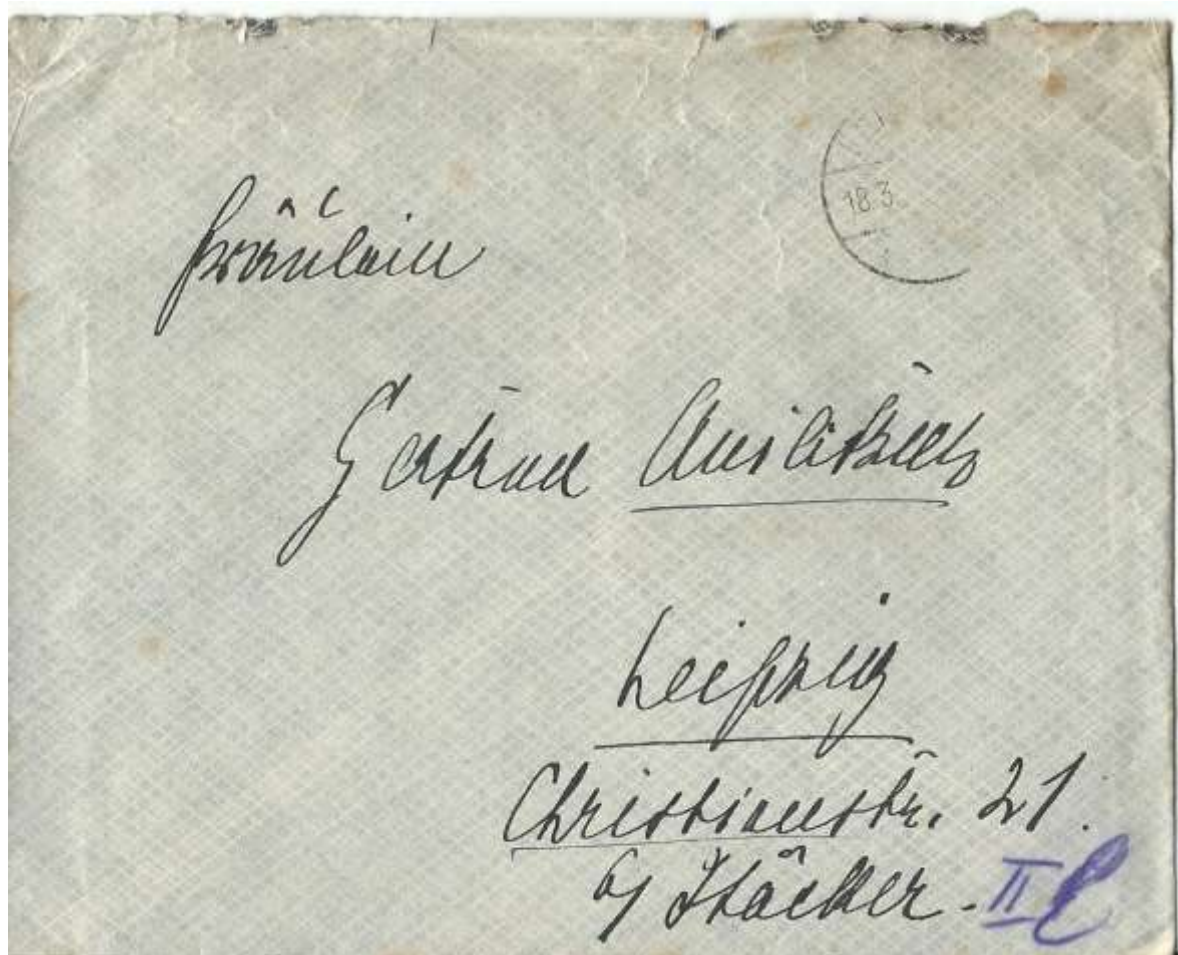 18.3.
Fräulein
Gertrud
Leipzig
Christianstr. 21.
b/ Stäcker. II